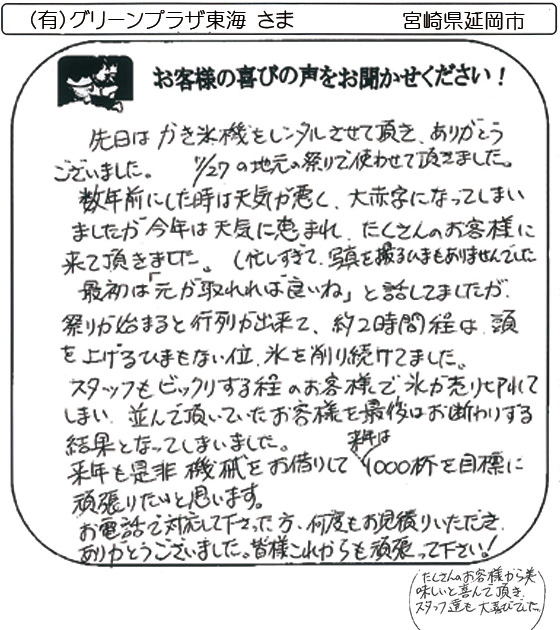 (有)グリーンプラザ東海 さま 宮崎県延岡市
お客様の喜びの声をお聞かせください！
先日は かき氷機をレンタルさせて頂き、ありがとう
ございました。 7/27の地元の祭りで使わせて頂きました。
数年前にした時は天気が悪く、大赤字になってしまい
ましたが今年は天気に恵まれ、たくさんのお客様に
来て頂きました。(忙しすぎて、写真を撮るひまもありませんでした
最初は「元が取れれば良いね」と話してましたが、
祭りが始まると行列が出来て、約2時間程は、頭
を上げるひまもない位、氷を削り続けてました。
スタッフもビックリする程のお客様で氷が売り切れて
しまい、並んで頂いていたお客様を最後はお断わりする
結果となってしまいました。
来年も是非機械をお借りして 来年は 1000杯を目標に
頑張りたいと思います。
お電話で対応して下さった方、何度もお見積りいただき、
ありがとうございました。皆様これからも頑張って下さい!
(たくさんのお客様から美
味しいと喜んで頂き、
スタッフ達も大喜びでした。)